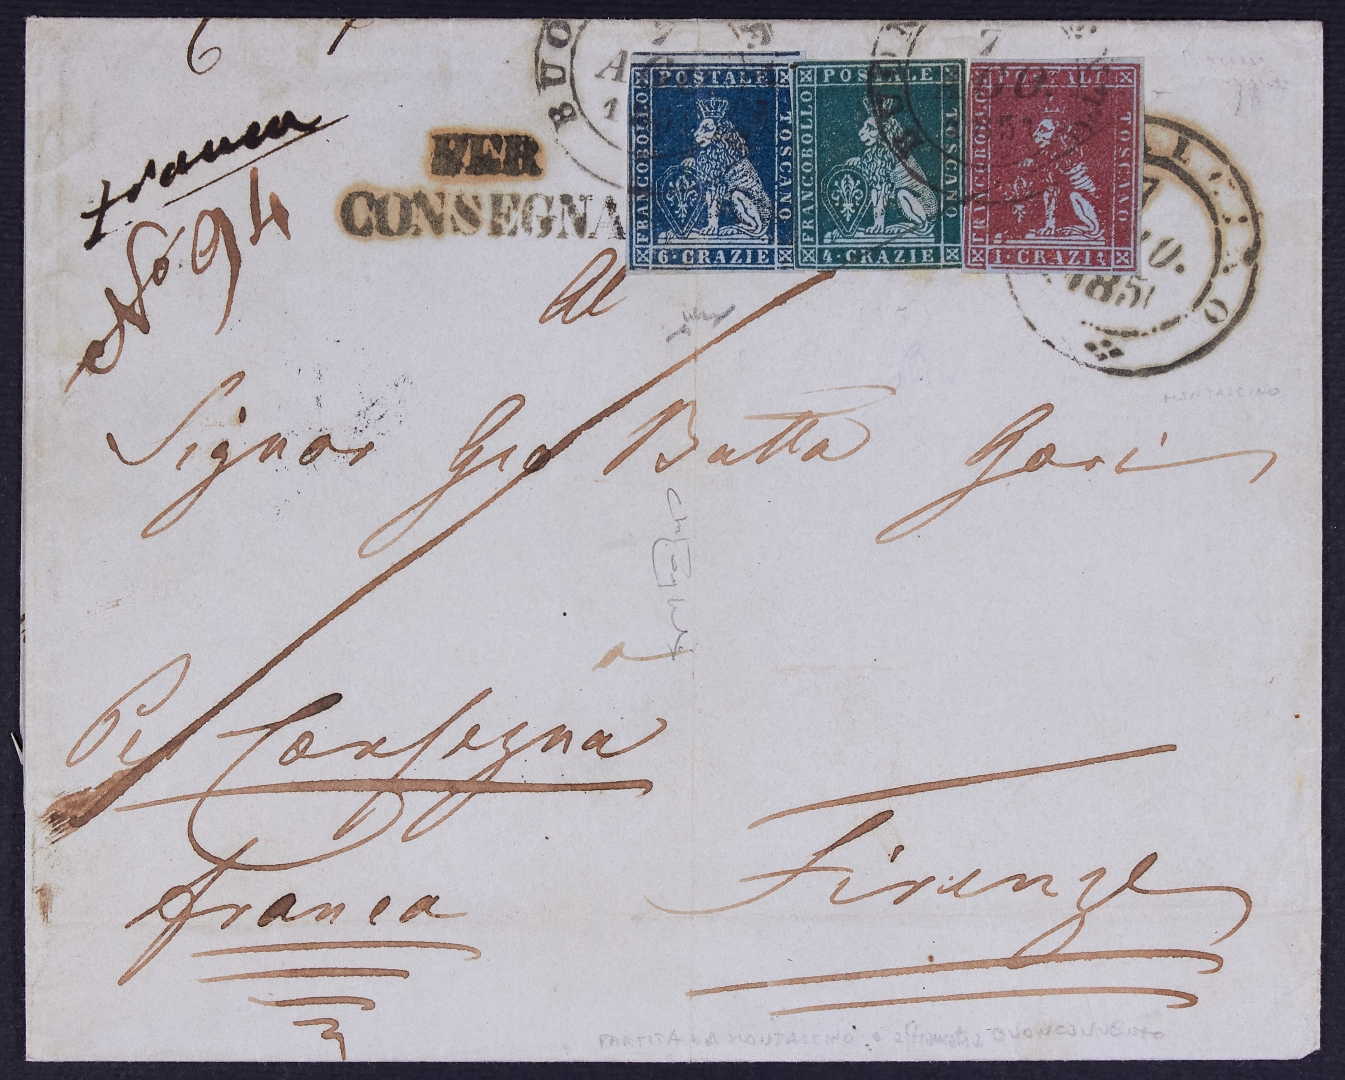 franca
PER
CONSEGNA
No. 94
BUO
7
POSTALE
FRANCOBOLLO
TOSCANO
6 · CRAZIE
POSTALE
FRANCOBOLLO
TOSCANO
4 · CRAZIE
FRANCOBOLLO
TOSCANO
1 · CRAZIE
7
1851
Al
Signor Gio Batta Gori
MONTALCINO
a
Per Consegna
franca
Firenze
PARTITA DA MONTALCINO e affrancata a BUONCONVENTO